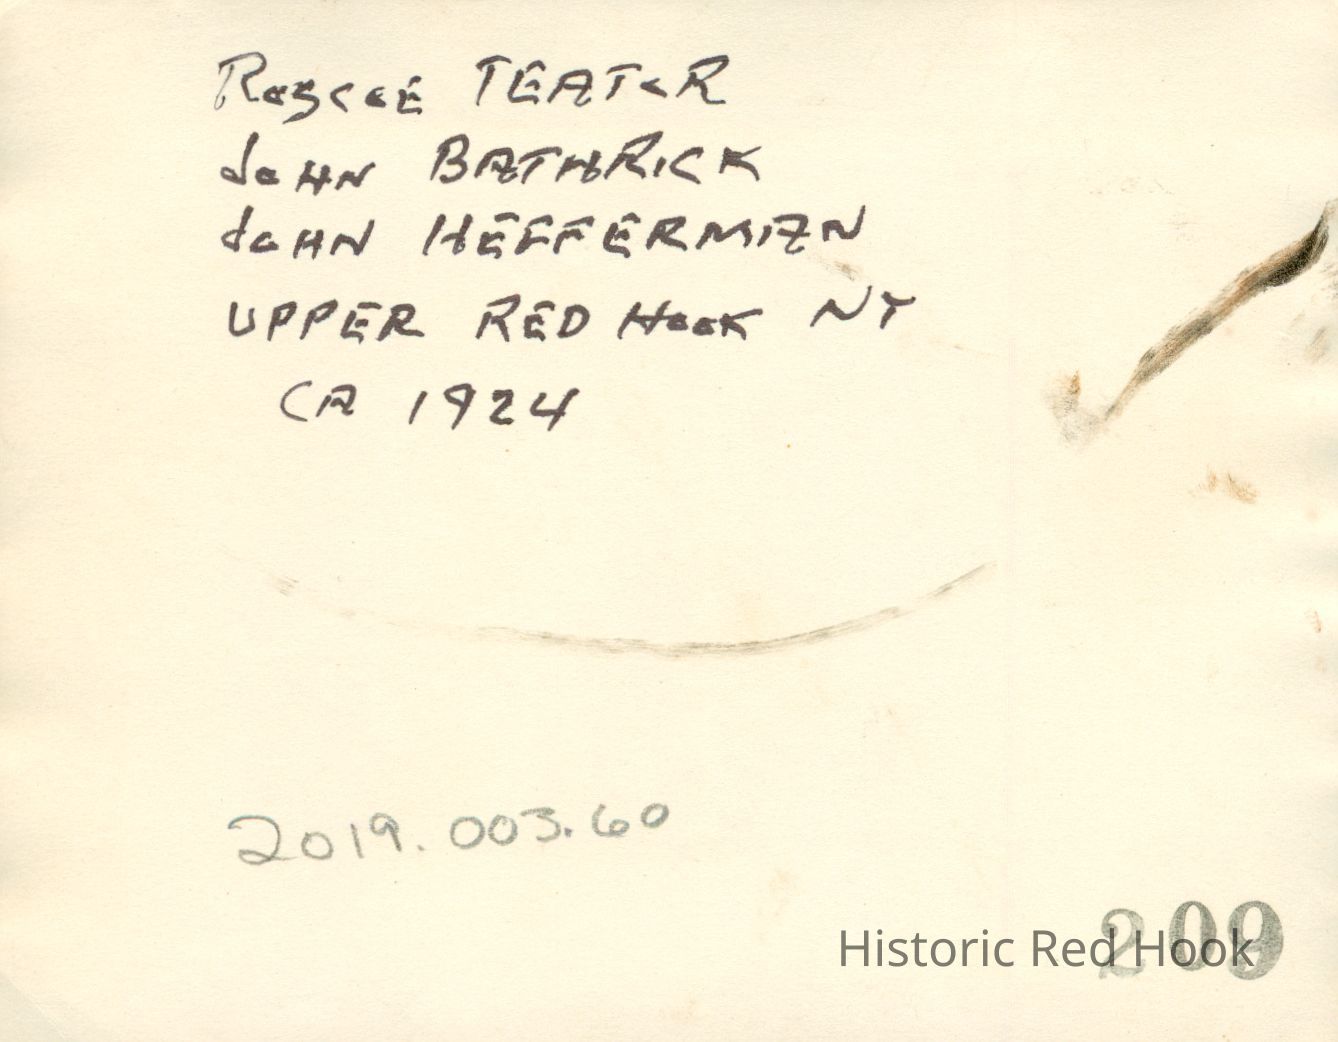 Roscoe TEATOR
JOHN BATHRICK
JOHN HEFFERMAN
UPPER RED HOOK NY
CA 1924
2019.003.60
Historic Red Hook
209